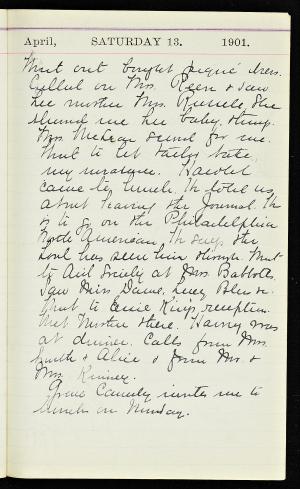 April, SATURDAY 13. 1901.
Went out bought piqué dress.
Called on Mrs. Reen & saw
her mother Mrs. She
showed me her baby things.
Mrs. McLean sewed for me.
Went to let tailor take
my measure. Harold
came to lunch. He told us
about leaving the Journal. He
is to go on the Philadelphia
North American. He says the
Lord has seen him through. Went
to Aid Society at Mrs. Babbott's.
Saw Miss Lucy
Went to King's reception.
Met Mother there. Harvey was
at dinner. Calls from Mrs.
Smith & Alice & from Mr. &
Mrs. Kinney.
Grace invites me to
lunch on Monday.